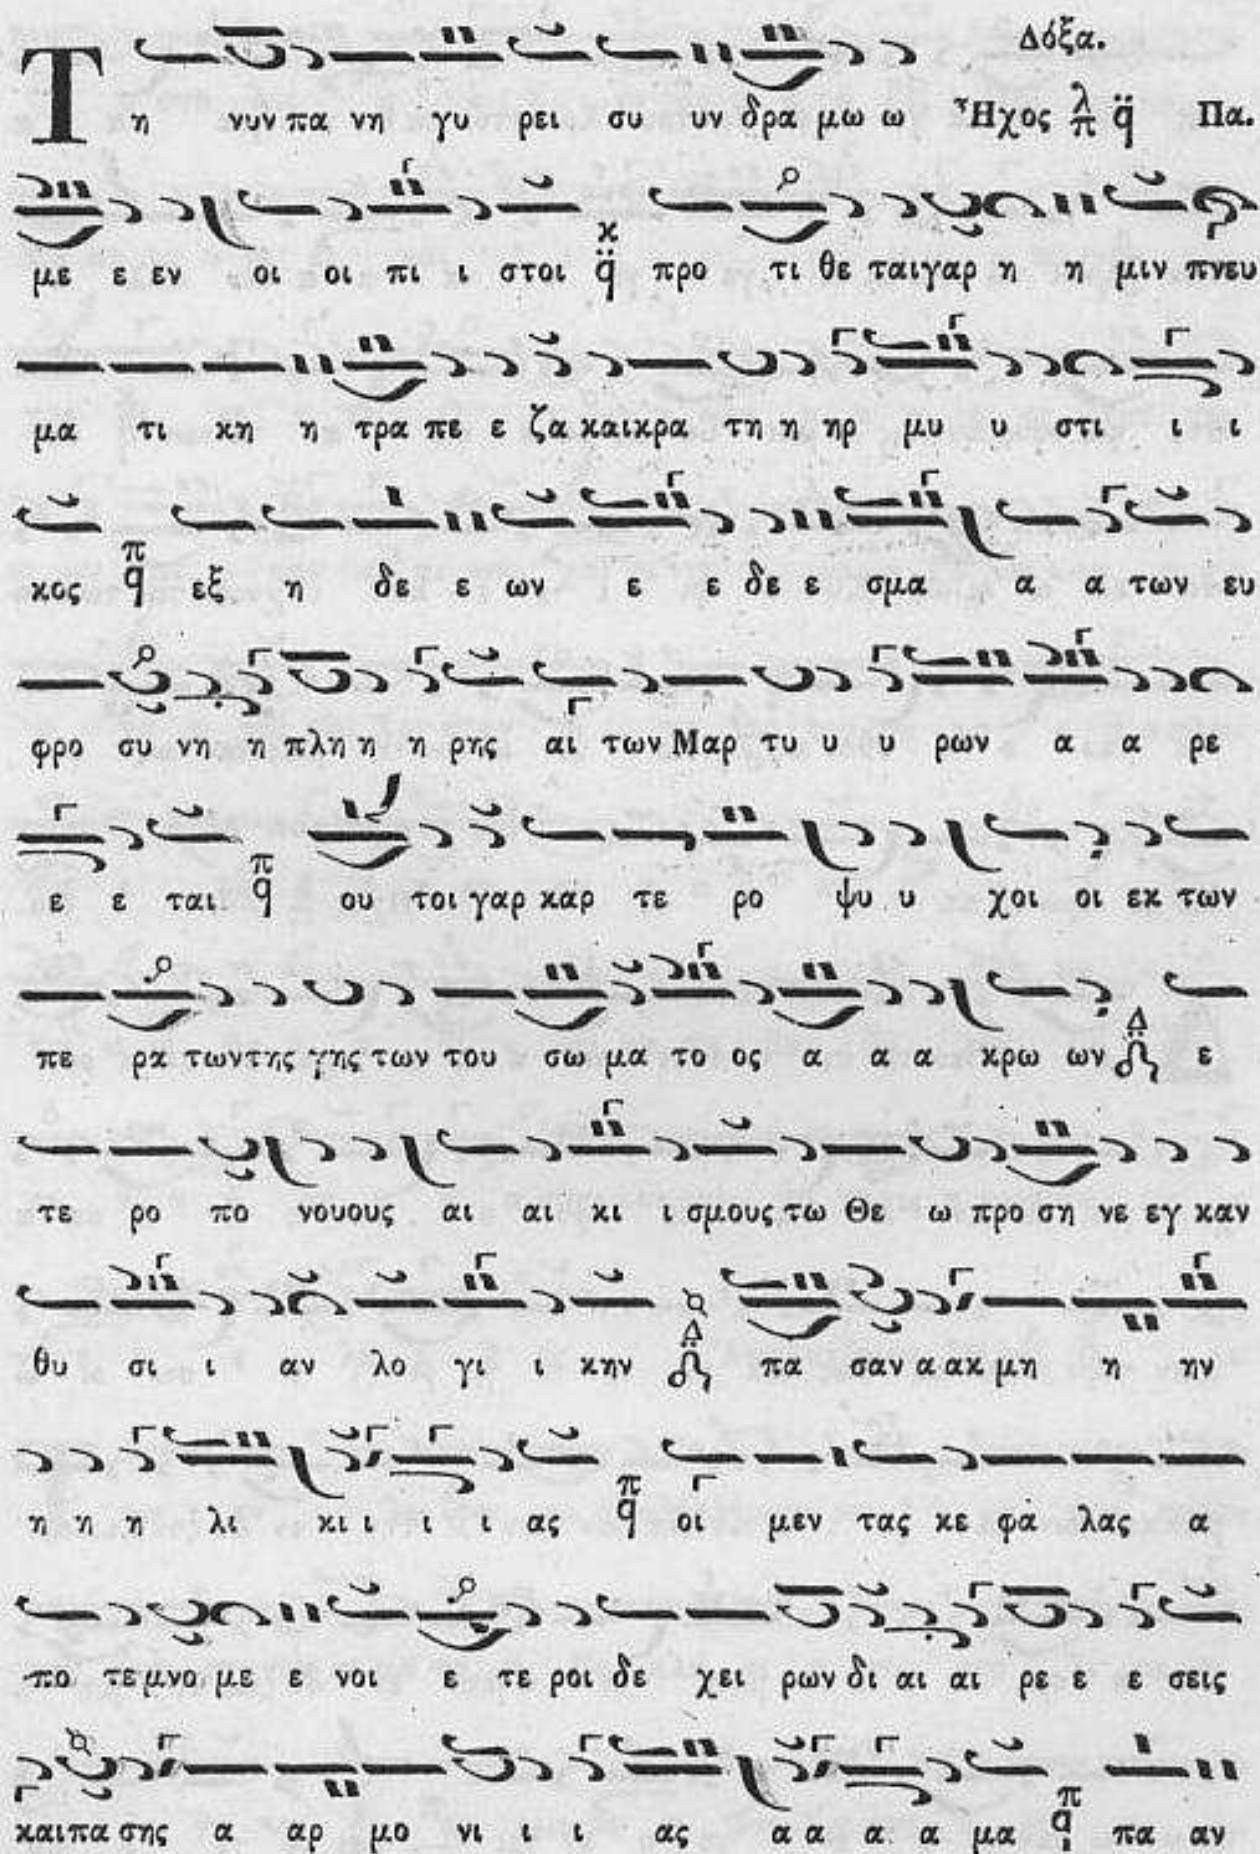 Δόξα.
Τη νυν πα νη γυ ρει συ υν δρα μω ω Ἦχος λ π q Πα.
με ε εν οι οι πι ι στοι q κ προ τι θε ται γαρ η η μιν πνευ
μα τι κη η τρα πε ε ζα και κρα τη η ηρ μυ υ στι ι ι
κος q π εξ η δε ε ων ε ε δε ε σμα α α των ευ
φρο συ νη η πλη η η ρης αι των Μαρ τυ υ υ ρων α α ρε
ε ε ται q π ου τοι γαρ καρ τε ρο ψυ υ χοι οι εκ των
πε ρα των της γης των του σω μα το ος α α α κρω ων Δ ε
τε ρο πο νουους αι αι κι ι σμους τω Θε ω προ ση νε εγ καν
θυ σι ι αν λο γι ι κην Δ πα σαν α ακ μη η ην
η η η λι κι ι ι ι ας q π οι μεν τας κε φα λας α
πο τε μνο με ε νοι ε τε ροι δε χει ρων δι αι αι ρε ε ε σεις
και πα σης α αρ μο νι ι ι ας α α α α μα q π πα αν